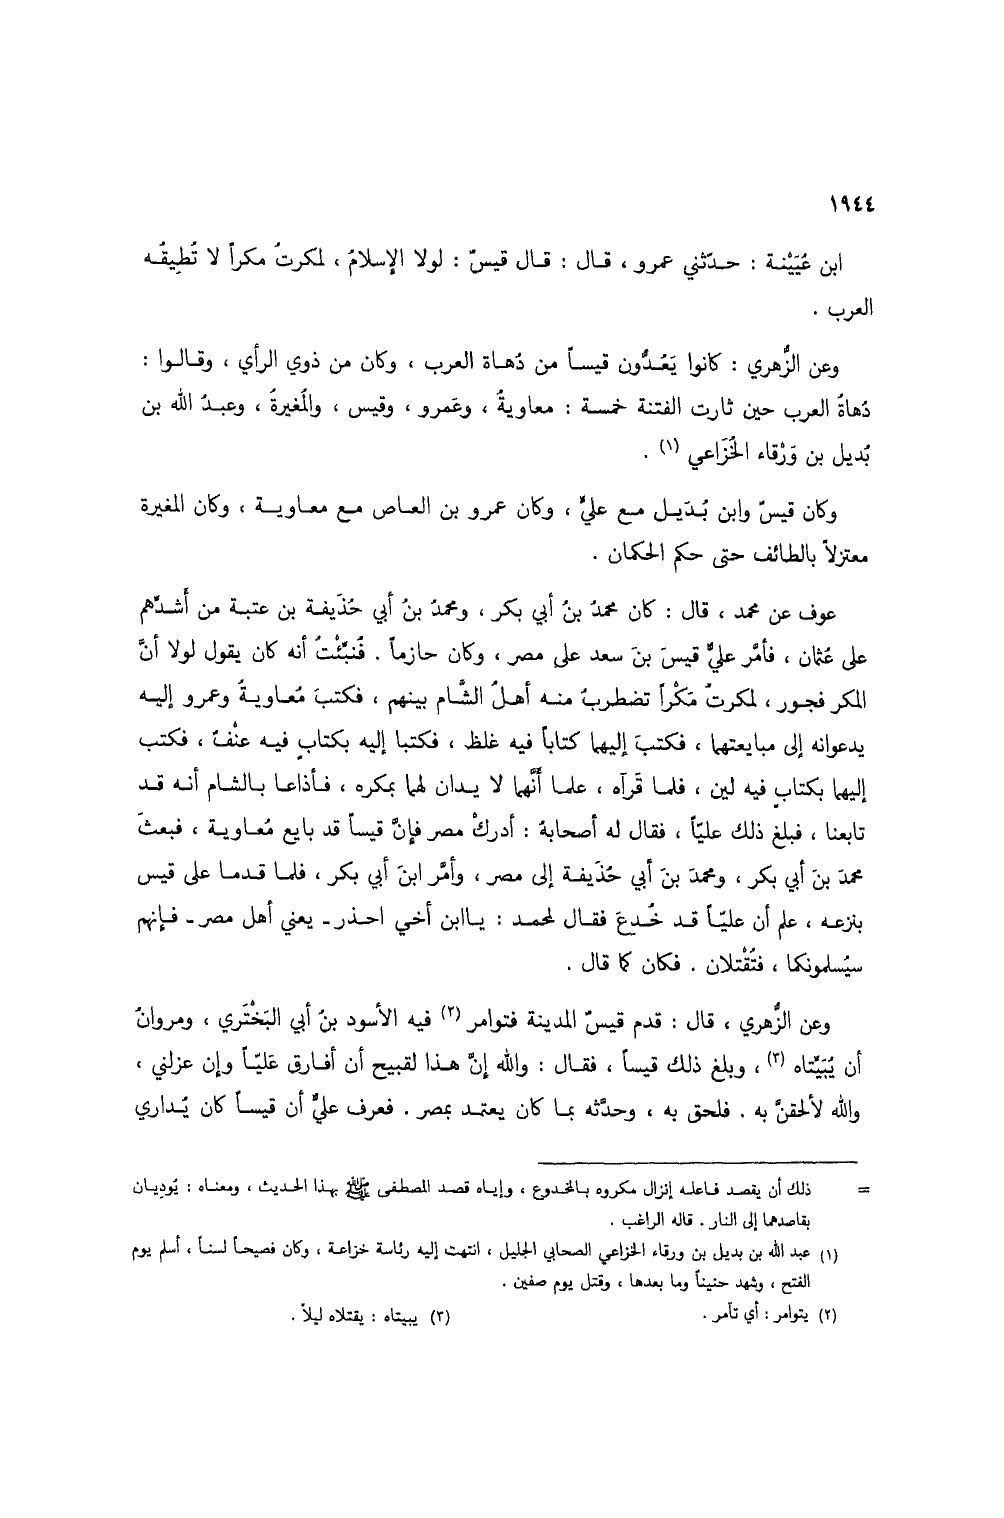 ١٩٤٤
ابن عُيَيْنة : حدّثني عمرو ، قال : قال قيسٌ : لولا الإسلامُ ، لمكرتُ مكراً لا تُطِيقُه
العرب .
وعن الزُّهري : كانوا يَعُدُّون قيساً من دُهاة العرب ، وكان من ذوي الرأي ، وقالوا :
دُهاةُ العرب حين ثارت الفتنة خمسة : معاويةُ ، وعَمرو ، وقيس ، والمُغيرةُ ، وعبدُ الله بن
بُديل بن وَرْقاء الخُزَاعي (١) .
وكان قيسٌ وابن بُدَيل مع عليٍّ ، وكان عمرو بن العاص مع معاوية ، وكان المغيرة
معتزلاً بالطائف حتى حكم الحكمان .
عوف عن محمد ، قال : كان محمدُ بنُ أبي بكر ، ومحمدُ بنُ أبي حُذَيفة بن عتبة من أَشدِّهم
على عُثمان ، فأمَّر عليٌّ قيسَ بنَ سعد على مصر ، وكان حازماً . فَنُبِّئْتُ أنه كان يقول لولا أنَّ
المكر فجور ، لمكرتُ مَكْراً تضطربُ منه أهلُ الشَّام بينهم ، فكتبَ مُعاويةُ وعمرو إليه
يدعوانه إلى مبايعتهما ، فكتبَ إليهما كتاباً فيه غلظ ، فكتبا إليه بكتابٍ فيه عنْفٌ ، فكتب
إليهما بكتابٍ فيه لين ، فلما قَرآه ، علما أنَّهما لا يدان لهما بمكره ، فأذاعا بالشام أنه قد
تابعنا ، فبلغ ذلك عليّاً ، فقال له أصحابهُ : أدركْ مصر فإنَّ قيساً قد بايع مُعاوية ، فبعثَ
محمدَ بنَ أبي بكر ، ومحمدَ بنَ أبي حُذَيفة إلى مصر ، وأمَّر ابنَ أبي بكر ، فلما قدما على قيس
بنزعه ، علم أن عليّاً قد خُدعَ فقال لمحمد : ياابن أخي احذر ـ يعني أهل مصر ـ فإنهم
سيُسلمونكما ، فتُقْتلان . فكان كما قال .
وعن الزُّهري ، قال : قدم قيسٌ المدينة فتوامر (٢) فيه الأسود بنُ أبي البَخْتَري ، ومروانُ
أن يُبَيِّتاه (٣) ، وبلغ ذلك قيساً ، فقال : والله إنَّ هذا لقبيح أن أفارق عَليّاً وإن عزلني ،
والله لألحقنَّ به . فلحق به ، وحدَّثه بما كان يعتمد بمصر . فعرف عليٌّ أن قيساً كان يُداري
= ذلك أن يقصد فاعله إنزال مكروه بالمخدوع ، وإياه قصد المصطفى ﷺ بهذا الحديث ، ومعناه : يُوديان
بقاصدهما إلى النار . قاله الراغب .
(١) عبد الله بن بديل بن ورقاء الخزاعي الصحابي الجليل ، انتهت إليه رئاسة خزاعة ، وكان فصيحاً لسناً ، أسلم يوم
الفتح ، وشهد حنيناً وما بعدها ، وقتل يوم صفين .
(٢) يتوامر : أي تآمر . (٣) يبيتاه : يقتلاه ليلاً .